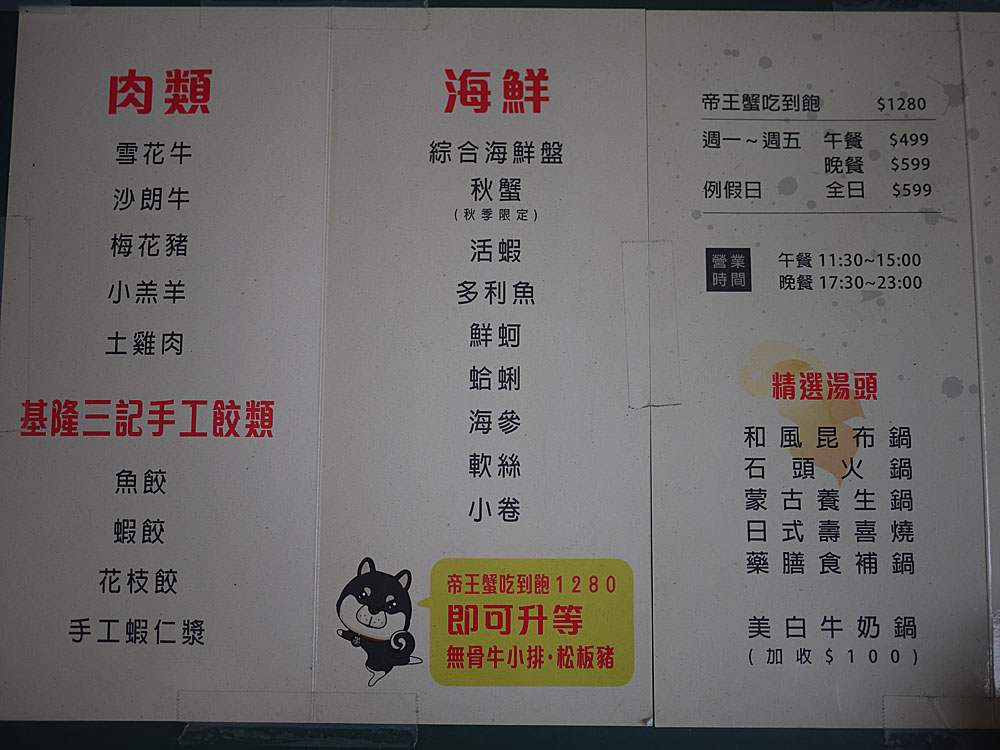 肉類
雪花牛
沙朗牛
梅花豬
小羔羊
土雞肉
基隆三記手工餃類
魚餃
蝦餃
花枝餃
手工蝦仁漿
海鮮
綜合海鮮盤
秋蟹
(秋季限定)
活蝦
多利魚
鮮蚵
蛤蜊
海參
軟絲
小卷
帝王蟹吃到飽1280
即可升等
無骨牛小排·松板豬
帝王蟹吃到飽 $1280
週一~週五 午餐 $499
晚餐 $599
例假日 全日 $599
營業時間
午餐 11:30~15:00
晚餐 17:30~23:00
精選湯頭
和風昆布鍋
石頭火鍋
蒙古養生鍋
日式壽喜燒
藥膳食補鍋
美白牛奶鍋
(加收$100)